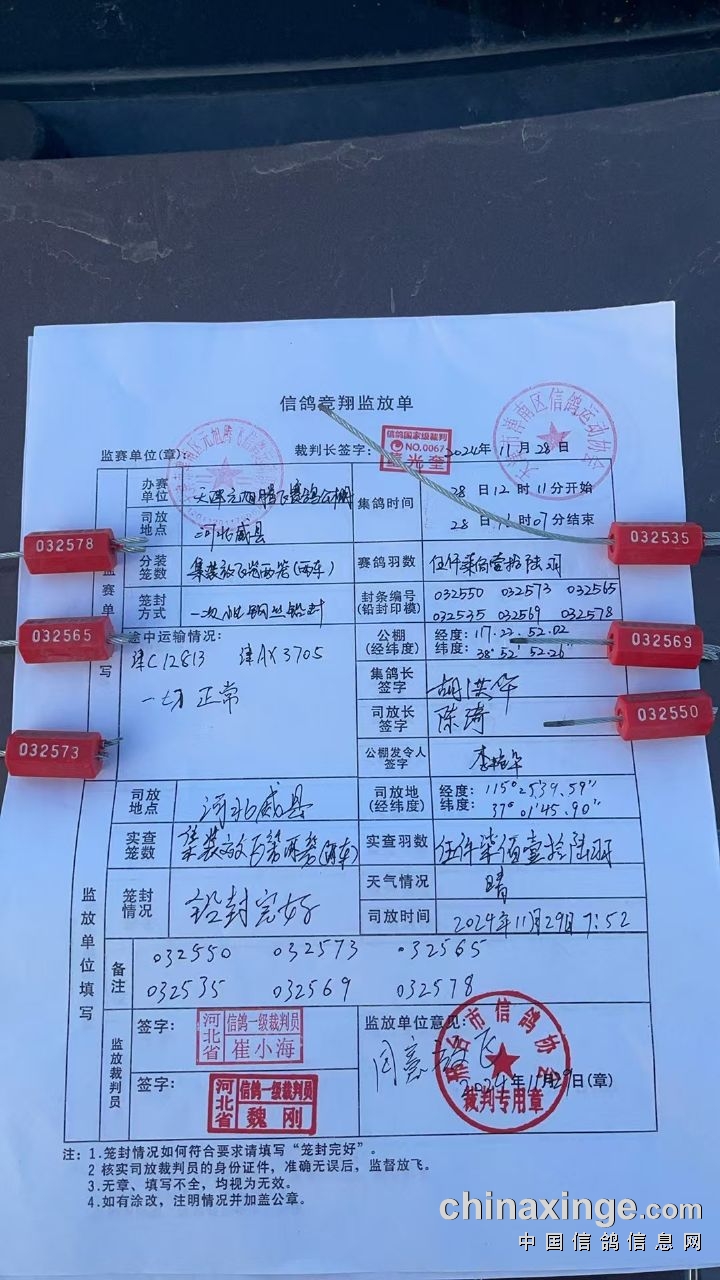 信鸽竞翔监放单
监赛单位(章):
裁判长签字:
信鸽国家级裁判
NO.0067
光奎
2024年11月28日
市津南区信鸽运动协会
办赛单位
司放地点
河北威县
集鸽时间
28日12时11分开始
28日1时07分结束
分装笼数
集装放飞笼两笼(两车)
赛鸽羽数
伍仟柒佰壹拾陆羽
笼封方式
一次性钢丝铅封
封条编号(铅封印模)
032550 032573 032565
032535 032569 032578
途中运输情况:
津C12813 津AX3705
一切正常
公棚(经纬度)
经度: 117.22.52.02
纬度: 38°52′52.26″
集鸽长签字
胡洪华
司放长签字
陈琦
公棚发令人签字
司放地点
河北威县
司放地(经纬度)
经度: 115°25′39.59″
纬度: 37°01′45.90″
实查笼数
集装放飞笼两笼(两车)
实查羽数
伍仟柒佰壹拾陆羽
笼封情况
铅封完好
天气情况
晴
司放时间
2024年11月29日 7:52
监放单位填写
备注
032550 032573 032565
032535 032569 032578
监放裁判员
签字:
河北省
信鸽一级裁判员
崔小海
签字:
河北省
信鸽一级裁判员
魏刚
监放单位意见:
同意放飞
市信鸽协会
裁判专用章
2024年11月29日(章)
注: 1.笼封情况如何符合要求请填写“笼封完好”。
2 核实司放裁判员的身份证件，准确无误后，监督放飞。
3.无章、填写不全，均视为无效。
4.如有涂改，注明情况并加盖公章。
032578
032565
032573
032535
032569
032550
chinaxinge.com
中国信鸽信息网